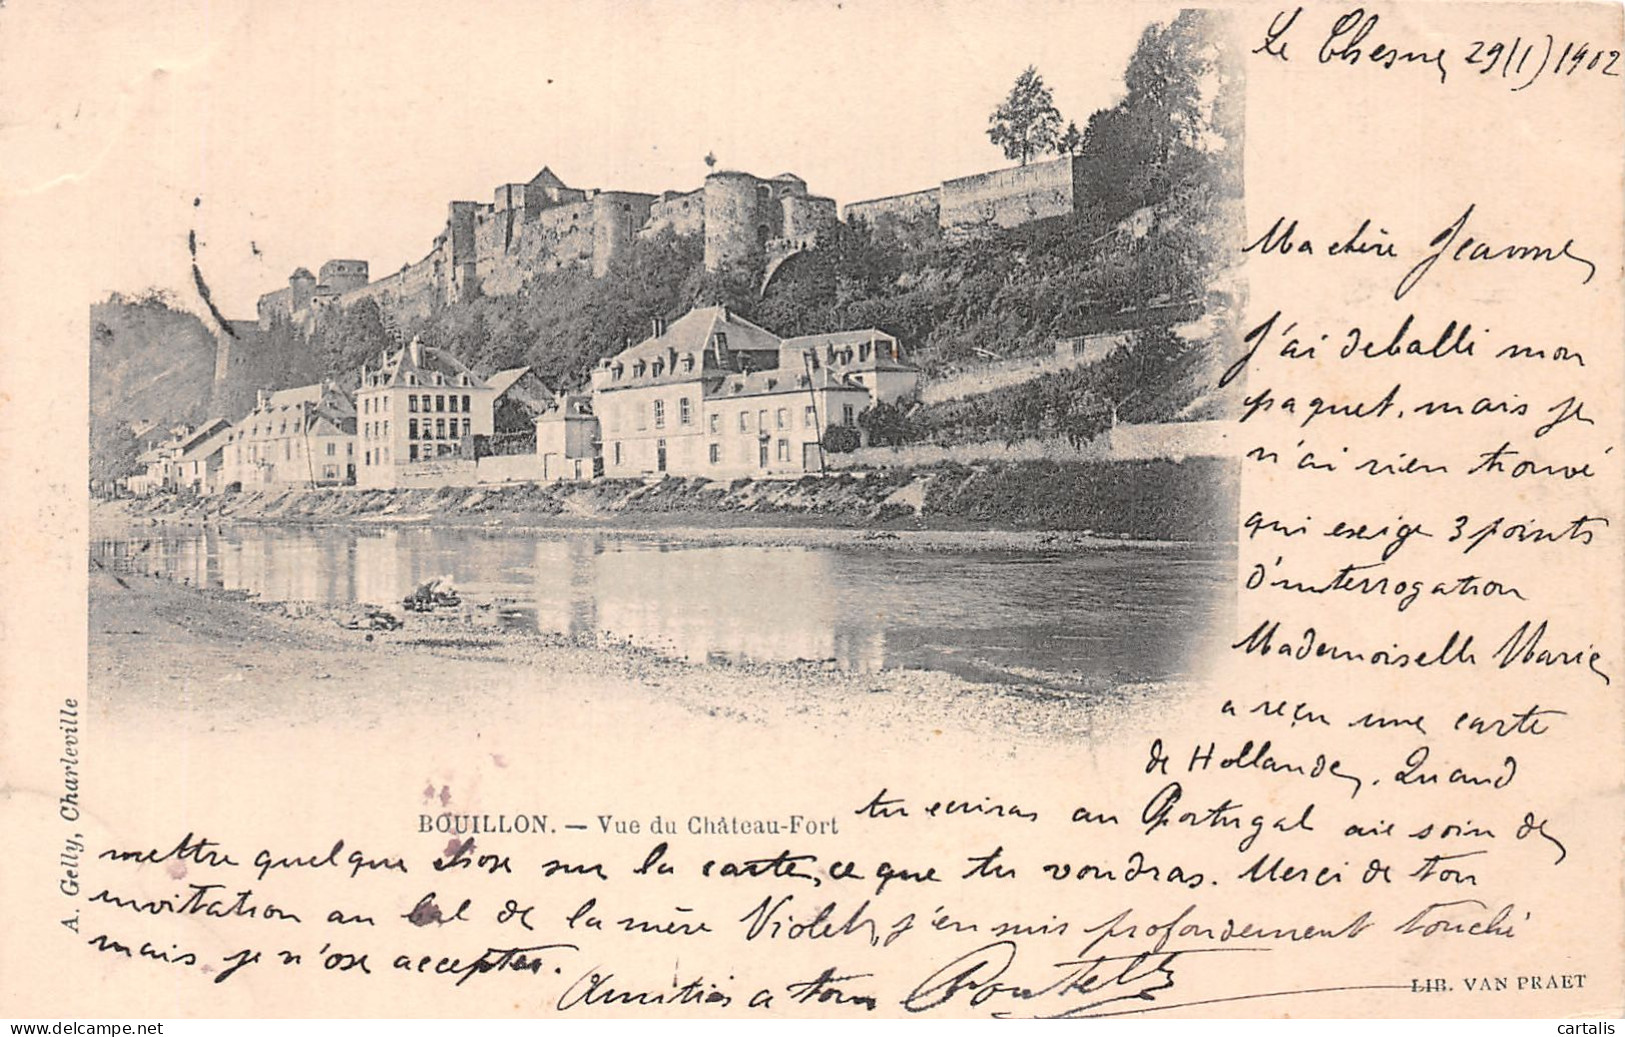 Le Chesne 29(1)1902
Ma chère Jeanne
J'ai deballé mon
paquet, mais je
n'ai rien trouvé
qui exige 3 points
d'interrogation
Mademoiselle Marie
a reçu une carte
de Hollande. Quand
tu ecriras au Portugal aie soin de
BOUILLON. — Vue du Château-Fort
mettre quelque chose sur la carte, ce que tu voudras. Merci de ton
invitation au bal de la mère Violet, j'en suis profondement touché
mais je n'ose accepter.
Amitiés a tous
A. Gelly, Charleville
LIB. VAN PRAET
cartalis
www.delcampe.net